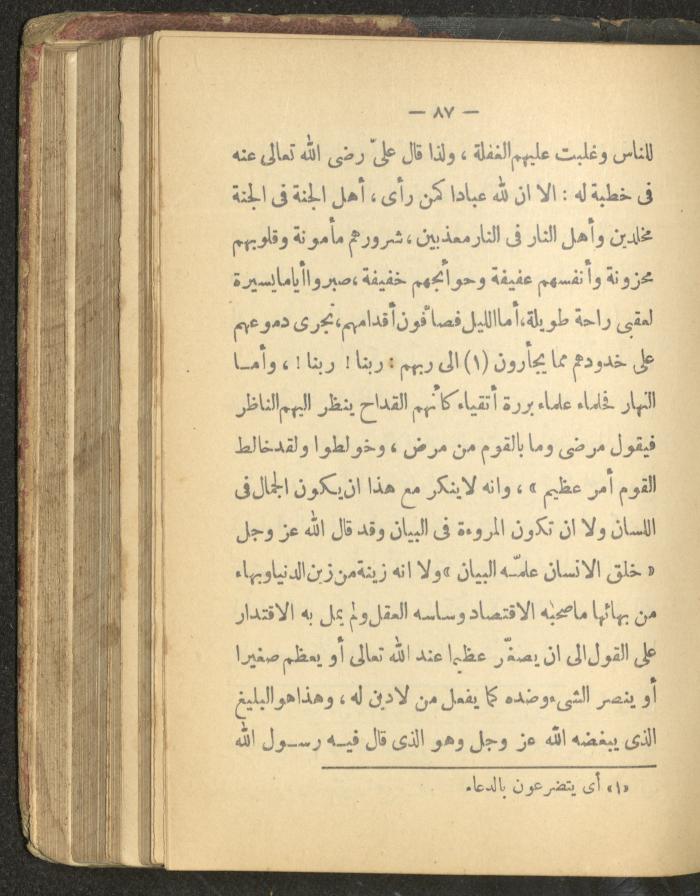 — ٨٧ —
للناس وغلبت عليهم الغفلة ، ولذا قال علىّ رضى الله تعالى عنه
فى خطبة له : الا ان لله عبادا كمن رأى ، أهل الجنة فى الجنة
مخلدين وأهل النار فى النار معذبين ، شرورهم مأمونة وقلوبهم
محزونة وأنفسهم عفيفة وحوائجهم خفيفة ، صبروا أياما يسيرة
لعقبى راحة طويلة ، أما الليل فصافّون أقدامهم ، تجرى دموعهم
على خدودهم مما يجأرون (١) الى ربهم : ربنا ! ربنا ! ، وأمـا
النهار فحلماء علماء بررة أتقياء كأنهم القداح ينظر اليهم الناظر
فيقول مرضى وما بالقوم من مرض ، وخولطوا ولقد خالط
القوم أمر عظيم » ، وانه لا ينكر مع هذا ان يكون الجمال فى
اللسان ولا ان تكون المروءة فى البيان وقد قال الله عز وجل
« خلق الانسان علمّه البيان » ولا انه زينة من زين الدنيا وبهاء
من بهائها ما صحبه الاقتصاد وساسه العقل ولم يمل به الاقتدار
على القول الى ان يصغّر عظيما عند الله تعالى أو يعظم صغيرا
أو ينصر الشىء وضده كما يفعل من لا دين له ، وهذا هو البليغ
الذى يبغضه الله عز وجل وهو الذى قال فيـه رسـول الله
«١» أى يتضرعون بالدعاء